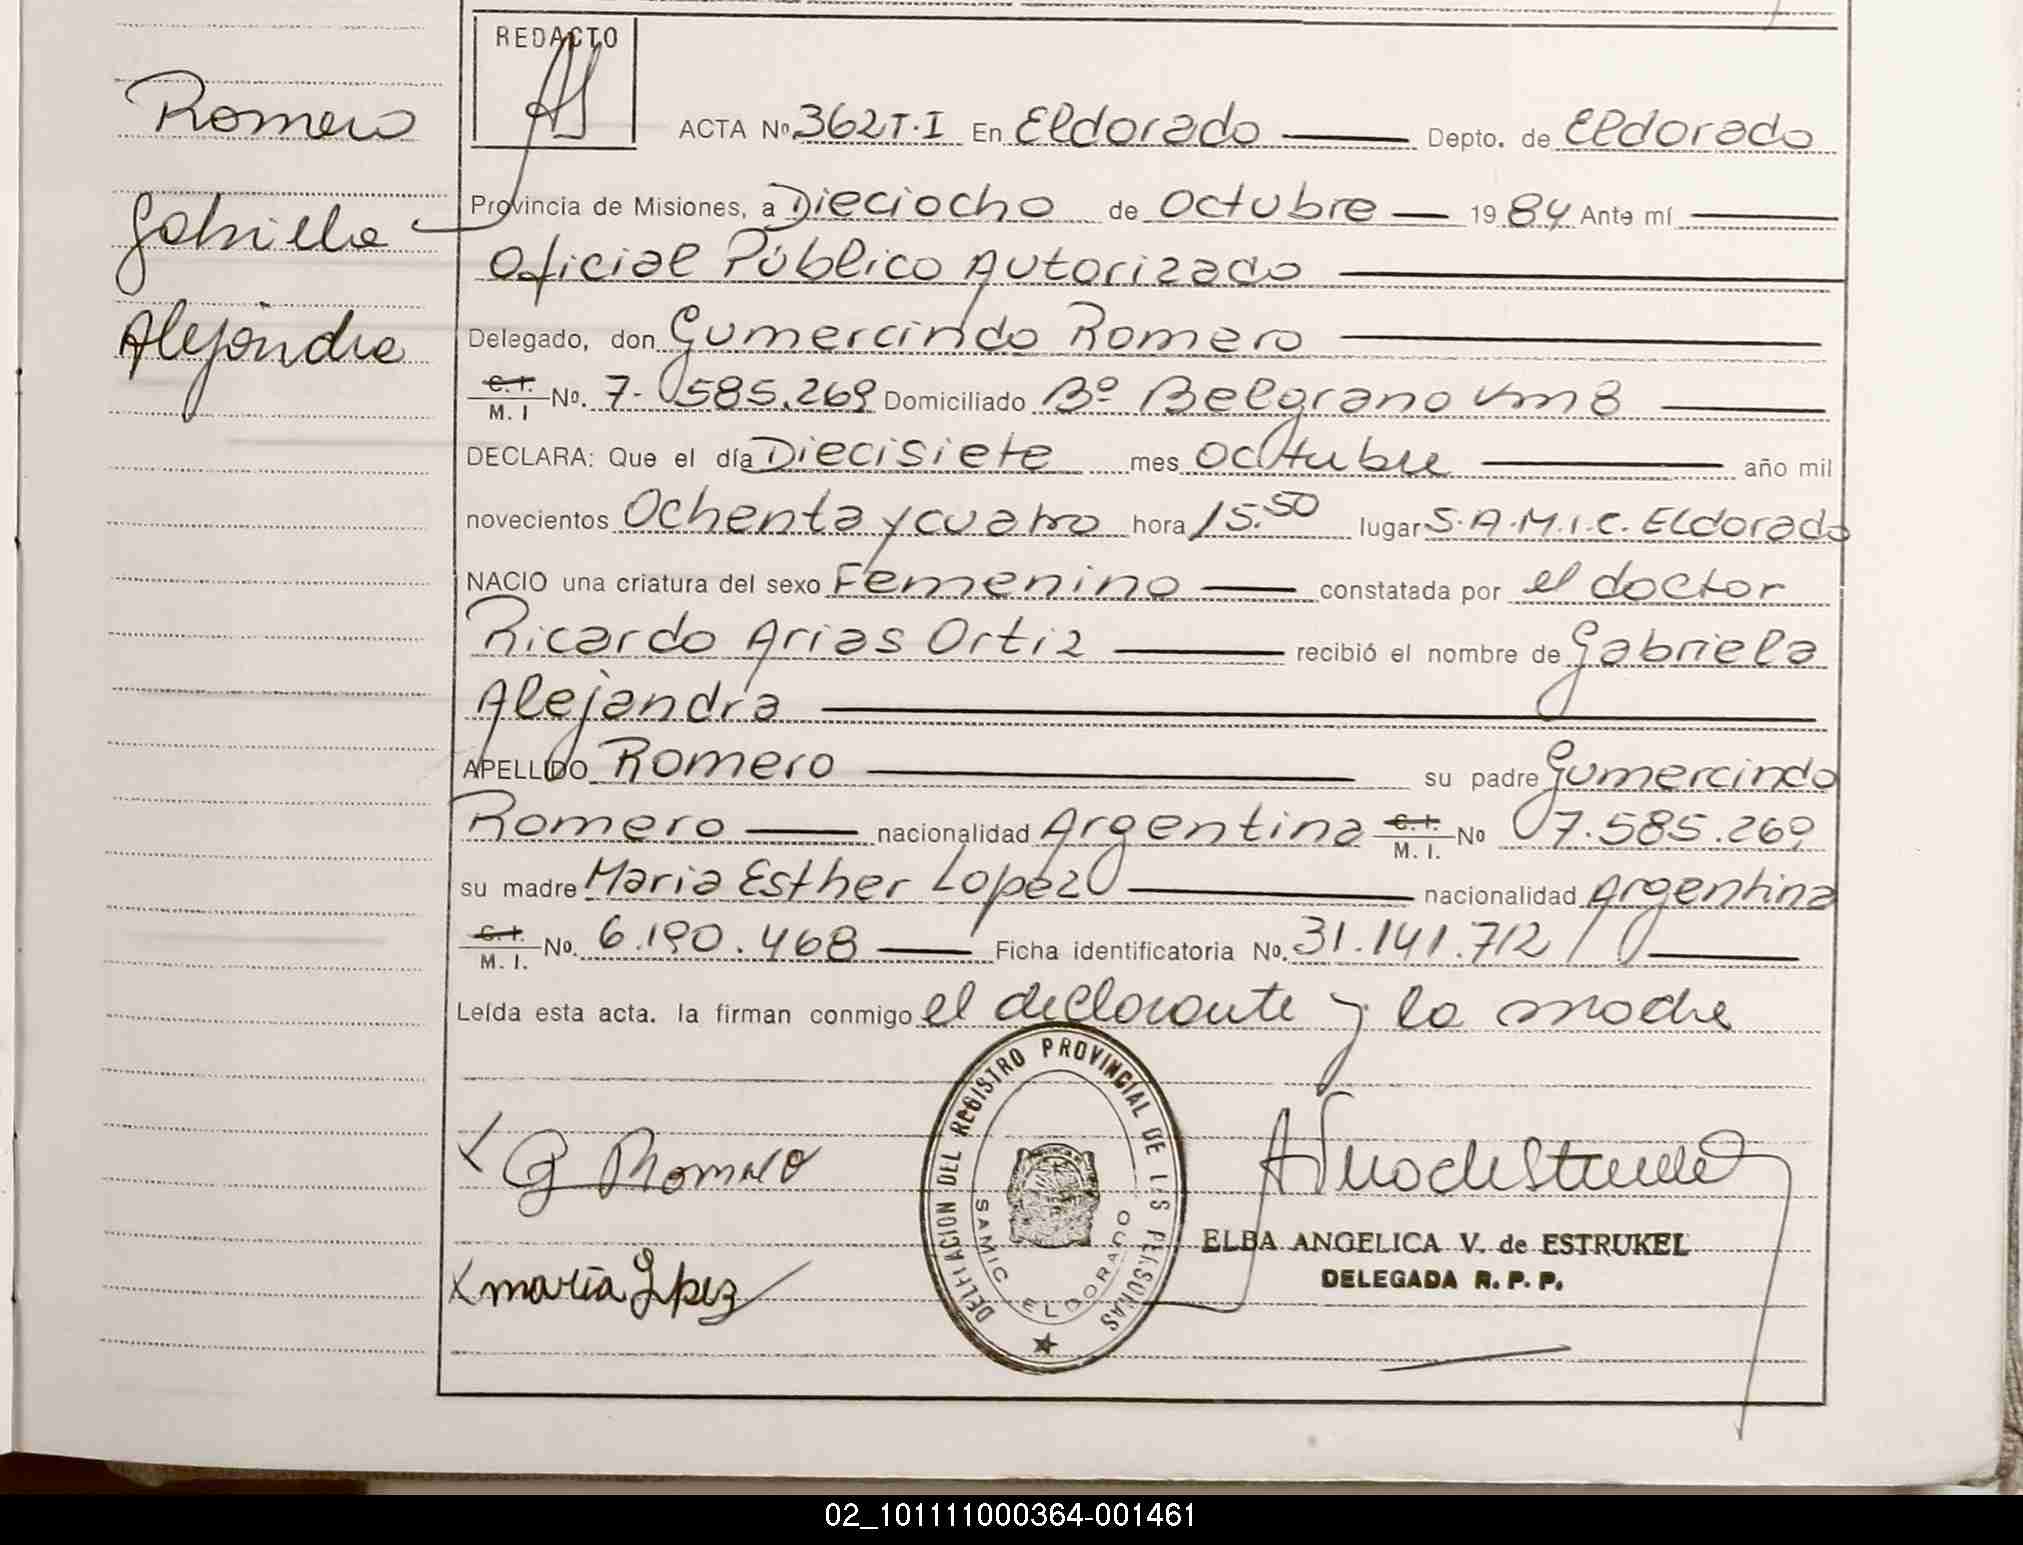 Romero
Gabriela
Alejandra
REDACTO
ACTA Nº 362 T·I En Eldorado Depto. de Eldorado
Provincia de Misiones, a Dieciocho de Octubre 1984 Ante mí
Oficial Público Autorizado
Delegado, don Gumercindo Romero
C. I. M. I Nº. 7.585.269 Domiciliado Bº Belgrano Km 8
DECLARA: Que el día Diecisiete mes octubre año mil
novecientos Ochenta y cuatro hora 15.50 lugar S.A.M.I.C. ELdorado
NACIO una criatura del sexo Femenino constatada por el doctor
Ricardo Arias Ortiz recibió el nombre de Gabriela
Alejandra
APELLIDO Romero su padre Gumercindo
Romero nacionalidad Argentina C. I. M. I. Nº 7.585.269
su madre Maria Esther Lopez nacionalidad Argentina
C. I. M. I. Nº. 6.190.468 Ficha identificatoria Nº. 31.141.712
Leída esta acta. la firman conmigo el declarante y la madre
G Romero
maría Lpez
DELEGACION DEL REGISTRO PROVINCIAL DE LAS PERSONAS
SAMIC ELDORADO
ELBA ANGELICA V. de ESTRUKEL
DELEGADA R. P. P.
02_101111000364-001461